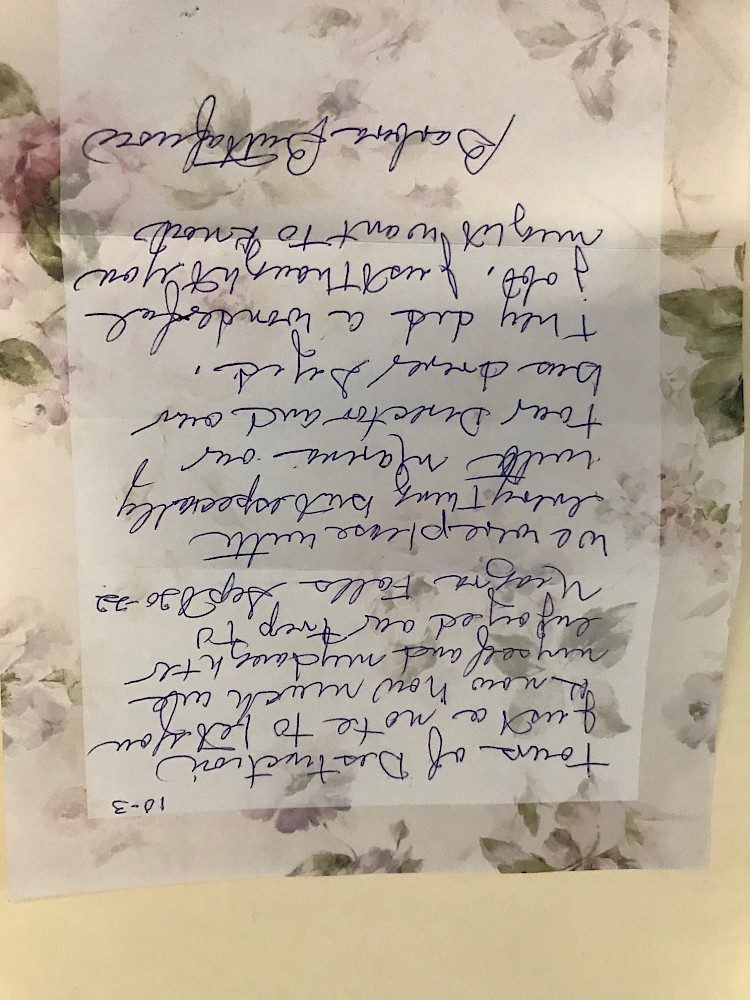 10-3
Tours of Distinction
Just a note to let you
know how much we
myself and my daughter
enjoyed our trip to
Niagra Falls Sept 20-22
We were please with
everything but especially
with Maria our
tour Director and our
bus driver
They did a wonderful
job. Just thought you
might want to know
Barbara